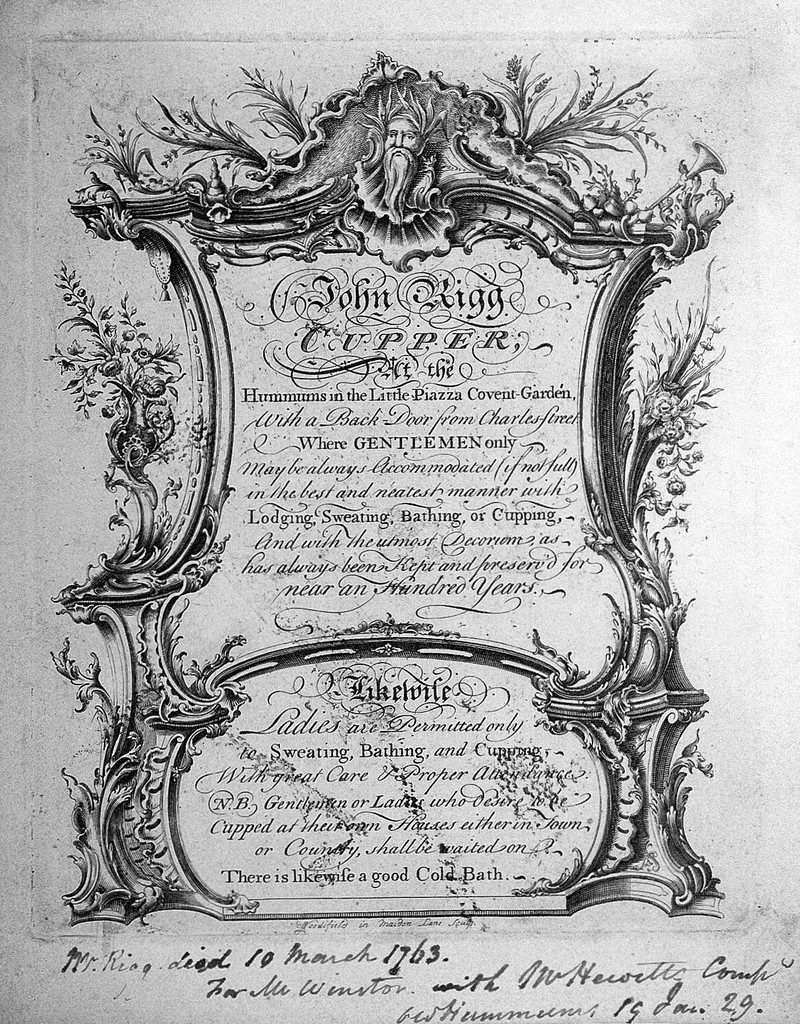 John Rigg
CUPPER,
At the
Hummums in the Little Piazza Covent-Garden,
With a Back Door from Charles-street
Where GENTLEMEN only
May be always Accommodated (if not full)
in the best and neatest manner with
Lodging, Sweating, Bathing, or Cupping,
And with the utmost Decorum, as
has always been Kept and preserv'd for
near an Hundred Years.
Likewise
Ladies are Permitted only
to Sweating, Bathing, and Cupping,
With great Care & Proper Attendance.
N.B. Gentlemen or Ladies who desire to be
Cupped at their own Houses either in Town
or Country, shall be waited on
There is likewise a good Cold Bath.
in Maiden Lane Sculp.
Mr. Rigg died 10 March 1763.
For Mr Winston with Mr Hewetts Compts
Old Hummums 19 Jan. 29.